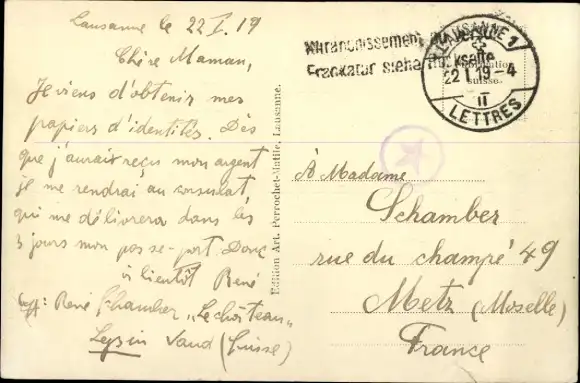 Lausanne le 22 I. 19
Chère Maman,
Je viens d'obtenir mes
papiers d'identités. Dès
que j'aurait reçus mon argent
je me rendrai au consulat,
qui me délivrera dans les
3 jours mon passe-port. Donc
à bientôt René
René Schamber „Le château"
Leysin Vaud (Suisse)
Edition Art. Perrochet-Matile, Lausanne.
Affranchissement au verso
Frankatur siehe Rückseite
LAUSANNE 1
22 I. 19 - 4
II
LETTRES
suisse.
À Madame
Schamber
rue du champé 49
Metz (Moselle)
France